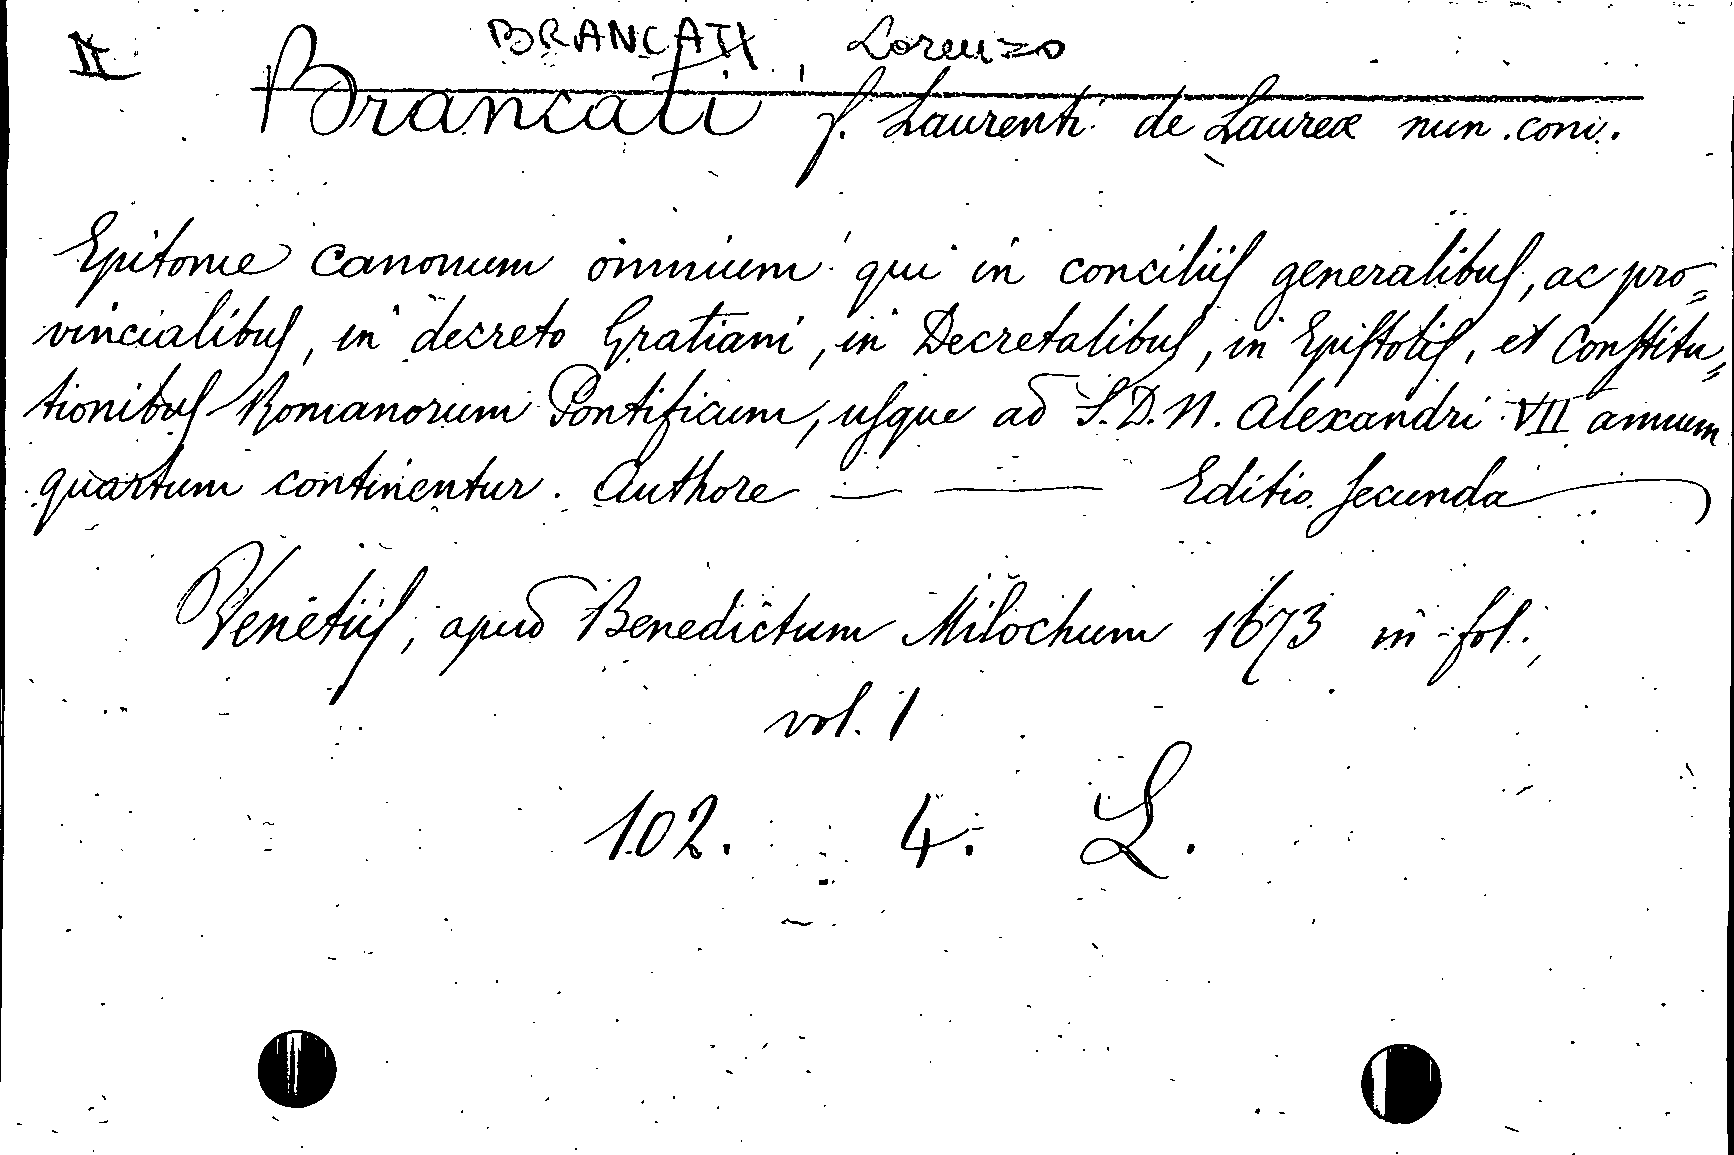 II
BRANCATI, Lorenzo
Brancati f. Laurenti de Laurea min. conv.
Epitome canonum omnium qui in conciliis generalibus, ac pro=
vincialibus, in decreto Gratiani, in Decretalibus, in Epistolis, et Constitu=
tionibus Romanorum Pontificum, usque ad S. D. N. Alexandri VII annum
quartum continentur. Authore — — Editio secunda
Venetiis, apud Benedictum Milochum 1673 in fol.,
vol. 1
102. 4. L.